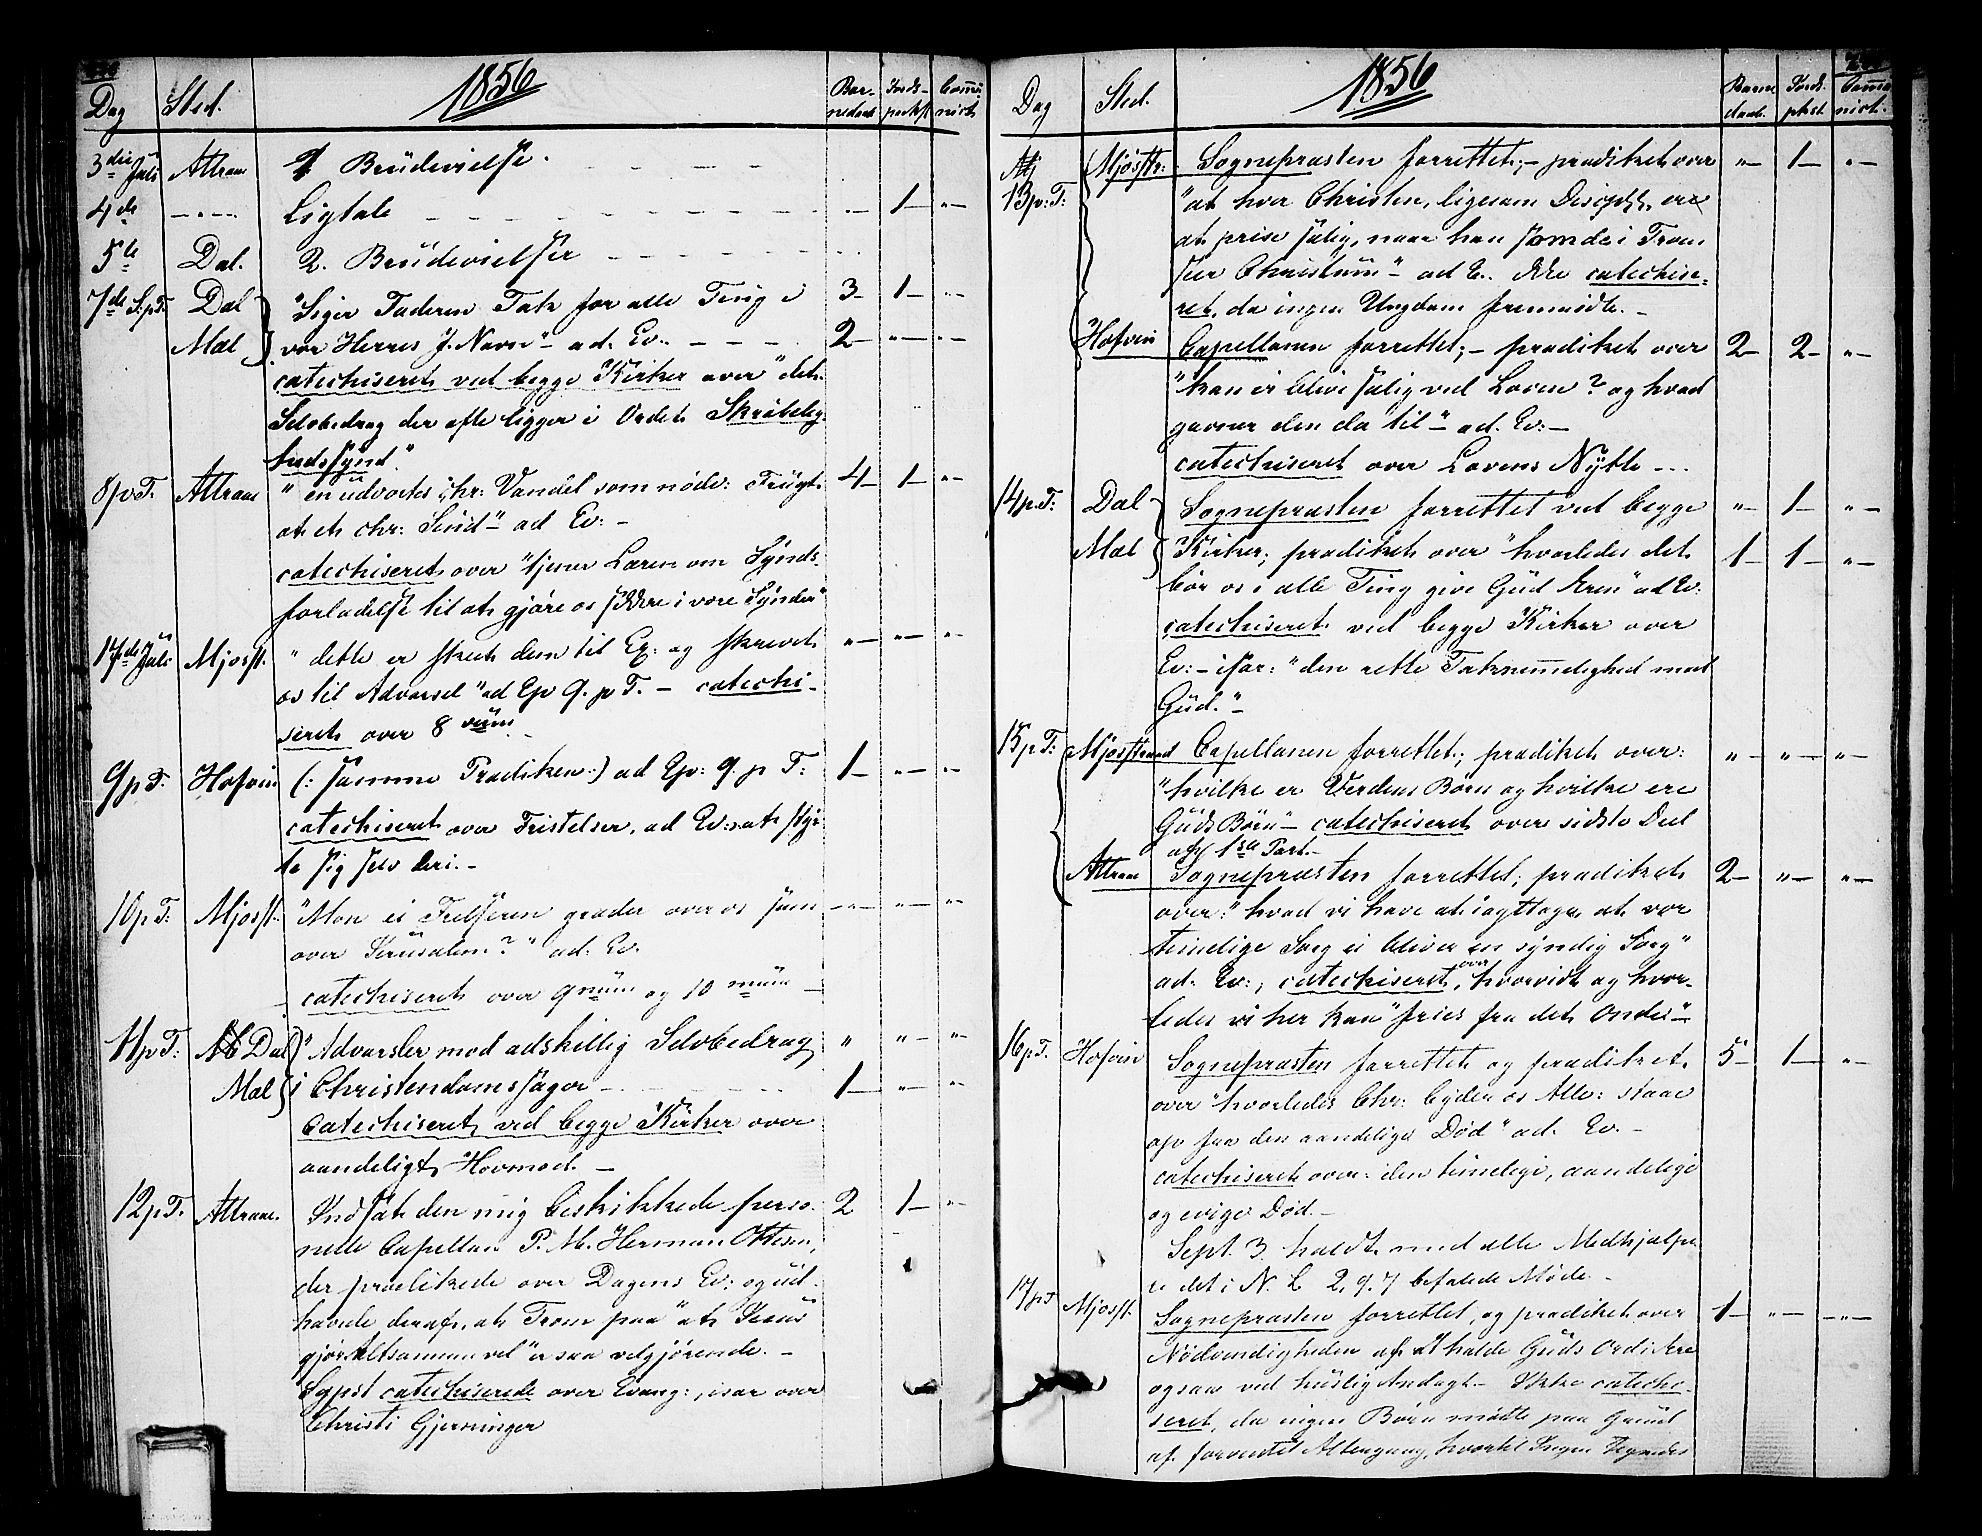 1856
Dag Sted. Bar- Jords- Comu-
nedaab paakst nict.
3die Juli Attraae 1 Brudevielse.
4de Ligtale 1
5te Dal. 2. Brudevielser
7de S. p T. Dal "Siger Faderen Tak for alle Ting i 3 1
Mæl vor Herres J. Navn" ad. Ev. 2
catechiseret ved begge Kirker over "det
Selvbedrag der ofte ligger i Ordet Skrøbelig
hedssynd."
8 p T. Attraae "en udvortes chr: Vandel som nødv: Frugt 4 1
at et chr: Sind" ad Ev: -
catechiseret over "tjener Læren om Synds-
forladelse til at gjøre os sikkre i vore Synder"
17de Juli Mjosst. "dette er skeet dem til Ex: og skrevet
os til Advarsel" ad Ep 9. p T. - catechi-
seret over 8
9 p T. Hofvin (: samme Prædiken:) ad Ep: 9. p T: 1
catechiseret over Fristelser, ad Ev: at styr-
te sig selv deri. -
10 p T: Mjosst. "Mon ei Frelseren græder over os som
over Jerusalem?" ad. Ev.
catechiseret over og 10
11 p T: Dal "Advarsler mod adskillig Selvbedrag
Mæl i Christendomssager - 1
Catechiseret ved begge Kirker over
aandeligt Hovmod. -
12 p T. Attraae. Indsat den mig beskikkede perso- 2 1
nelle Capellan P. M. Herman Ottesen,
der prædikede over Dagens Ev: og ud-
havede deraf, at Troen paa "at Jesus
gjør Altsammen vel" er saa velgjørende. -
catechiserede over Evang:, især over
Christi Gjerninger
1856
Dag Sted. Barne Jords Comu
daab. pkst. nict.
13 p: T: Mjosstr. Sognepræsten forrettet; - prædiket over 1
"at hver Christen, ligesom Disciple, er
at prise salig, naar han i Troen
seer Christum" ad Ev. Ikke catechise-
ret, da ingen Ungdom fremmødte. -
Hofvin Capellanen forrettet; - prædiket over 2 2
"kan ei blive salig ved Loven? og hvad
gavner den da til" ad. Ev: -
catechiseret over Lovens Nytte -
14 p. T: Dal Sognepræsten forrettet ved begge 1
Mæl Kirker; prædiket over "hvorledes det 1 1
bør os i alle Ting give Gud Æren" ad Ev:
catechiseret ved begge Kirker over
Ev: - især: "den rette Taknemelighed mod
Gud."
15 p T: Mjosstrand Capellanen forrettet; prædiket over:
"hvilke er Verdens Børn og hvilke ere
Guds Børn" - catechiseret over sidste Deel
af 1ste Part. -
Attraae Sognepræsten forrettet; prædiket 2
over: "hvad vi have at iagttage, at vor
timelige Sorg ei bliver en syndig Sorg"
ad. Ev:; catechiseret over "hvorvidt og hvor-
ledes vi her kan fries fra det Onde"
16 p T. Hofvin Sognepræsten forrettet og prædiket 5 1
over "hvorledes Chr: byder os Alle: staae
op fra den aandelige Død" ad. Ev. -
catechiseret over: den timelige, aandelige
og evige Død. -
Sept. 3 holdt med alle Medhjælpe-
re det i N. L 2, 9. 7 befalede Møde -
17 p T Mjosst. Sognepræsten forrettet, og prædiket over 1
Nødvendigheden af at holde Guds Ord i Ære
ogsaa ved huslig Andagt - Ikke cateche-
seret, da ingen Børn mødte paa Grund
af forventet Altergang, hvortil Ingen